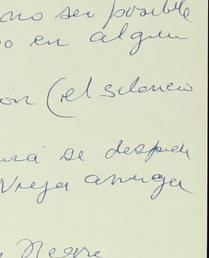 no ser posible
o en algun
on (el silencio
ra se despide
Vieja amiga
Negra